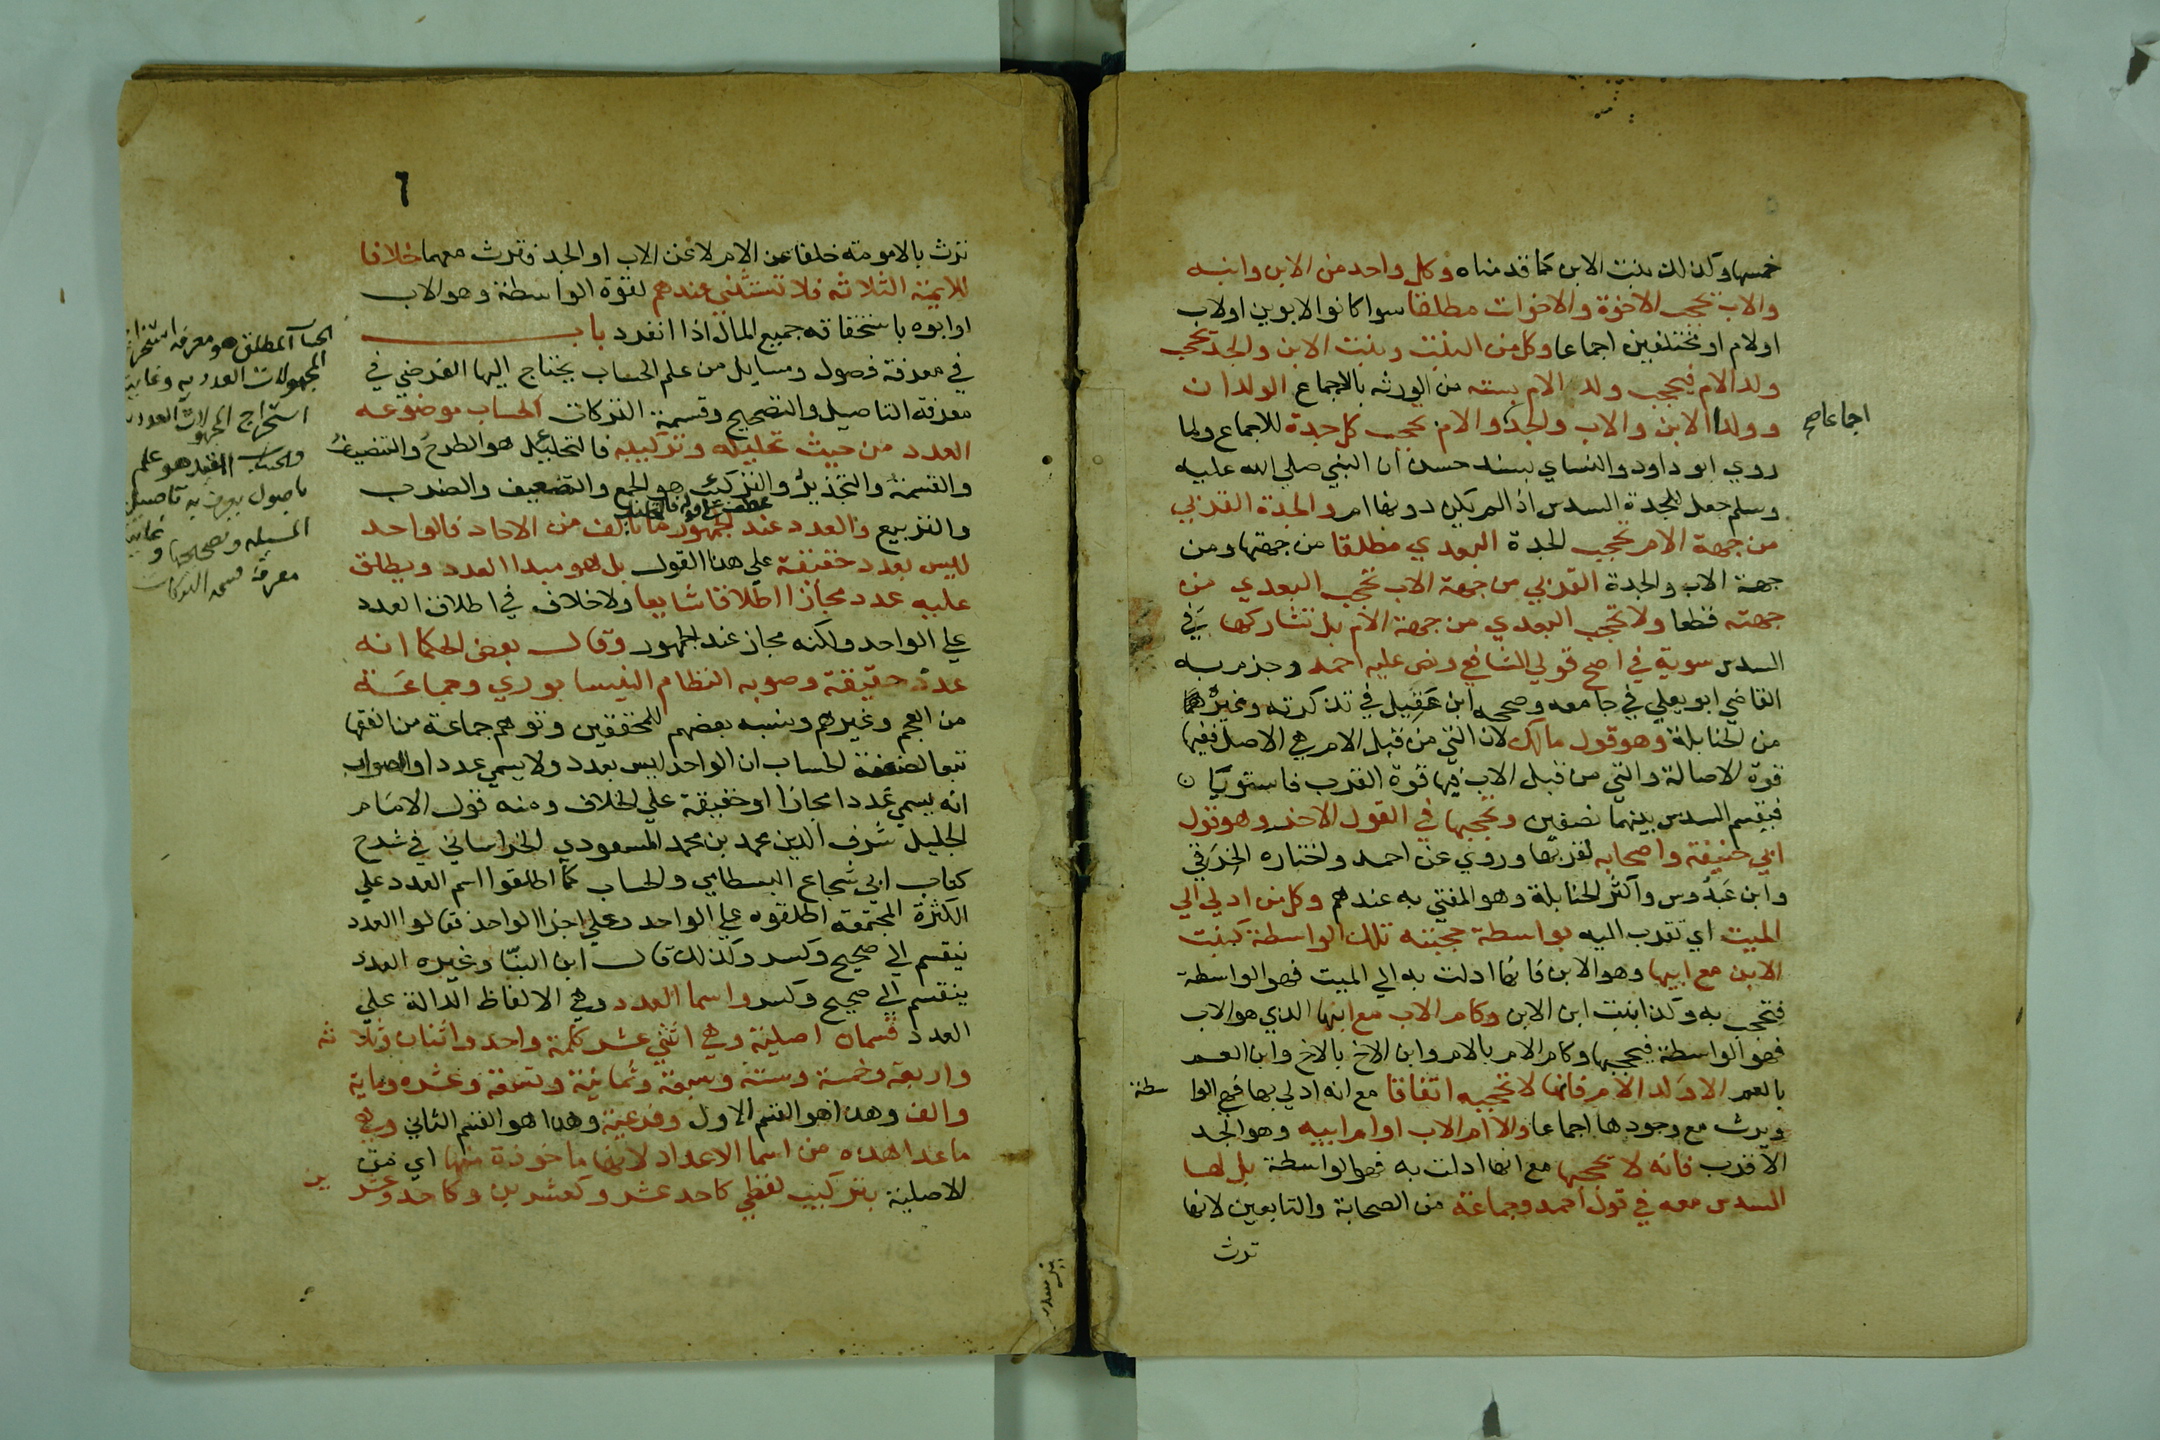 خمسها وكذلك بنت الابن كما قدمناه وكل واحد من الابن وابنه
والاب يحجب الاخوة والاخوات مطلقا سوا كانوا لابوين او لاب
او لام او مختلفين اجماعا وكل من البنت وبنت الابن والجد يحجب
ولد الام فيحجب ولد الام بستة من الورثه بالاجماع الولدان
وولدا الابن والاب والجد والام تحجب كل جدة للاجماع ولما
اجماعا صح
روي ابو داود والنساي بسند حسن ان النبي صلي الله عليه
وسلم جعل للجدة السدس اذا لم يكن دونها ام والجدة القربي
من جهة الام تحجب الجدة البعدي مطلقا من جهتها ومن
جهة الاب والجدة القربي من جهة الاب تحجب البعدي من
جهته قطعا ولا تحجب البعدي من جهة الام بل تشاركها في
السدس سوية في اصح قولي الشافعي ونص عليه احمد وجزم به
القاضي ابو يعلي في جامعه وصححه ابن عقيل في تذكرته وغيرهما
من الحنابلة وهو قول مالك لان التي من قبل الام هي الاصل ففيها
قوة الاصالة والتي من قبل الاب فيها قوة القرب فاستويا ن
فيقسم السدس بينهما نصفين وتحجبها في القول الاخر وهو قول
ابي حنيفة واصحابه لقربها وروي عن احمد واختاره الخرقي
وابن عبدوس واكثر الحنابلة وهو المفتي به عندهم وكل من ادلي الي
الميت اي تقرب اليه بواسطة حجبته تلك الواسطة كبنت
الابن مع ابيها وهو الابن فانها ادلت به الي الميت فهو الواسطة
فتحجب به وكذا بنت ابن الابن وكام الاب مع ابنها الذي هو الاب
فهو الواسطة فيحجبها وكام الام بالام وابن الاخ بالاخ وابن العم
بالعم الا ولد الام فانها لا تحجبه اتفاقا مع انه ادلي بها فهي الواسطة
ويرث مع وجودها اجماعا والا ام الاب او ام ابيه وهو الجد
الاقرب فانه لا يحجبها مع انها ادلت به فهو الواسطة بل لها
السدس معه في قول احمد وجماعة من الصحابة والتابعين لانها
ترث
٦
ترث بالامومة خلفا عن الام لا عن الاب او الجد فترث معهما خلافا
للايمة الثلاثه فلا تستثني عندهم لقوة الواسطة وهو الاب
او ابوه باستحقاقه جميع المال اذا انفرد باب
في معرفة فصول ومسايل من علم الحساب يحتاج اليها الفرضي في
معرفة التاصيل والتصحيح وقسمة التركات الحساب موضوعه
العدد من حيث تحليله وتركيبه فالتحليل هو الطرح والتنصيف
والقسمة والتجذير والتركيب هو الجمع والتضعيف والضرب
والتربيع والعدد عند الجمهور ما تالف من الاحاد فالواحد
ليس بعدد حقيقة علي هذا القول بل هو مبدا العدد ويطلق
عليه عدد مجازا اطلاقا شايعا ولا خلاف في اطلاق العدد
علي الواحد ولكنه مجاز عند الجمهور وقال بعض الحكما انه
عدد حقيقة وصوبه النظام النيسابوري وجماعة
من العجم وغيرهم ونسبه بعضهم للمحققين وتوهم جماعة من الفقها
تبعا لضعفة الحساب ان الواحد ليس بعدد ولا يسمي عددا والصواب
انه يسمي عددا مجازا او حقيقة علي الخلاف ومنه قول الامام
الجليل شرف الدين محمد بن محمد المسعودي الخراساني في شرح
كتاب ابي شجاع البسطامي والحساب كما اطلقوا اسم العدد علي
الكثرة المجتمعة اطلقوه علي الواحد وعلي اجزا الواحد فقالوا العدد
ينقسم الي صحيح وكسر وكذلك قال ابن البنا وغيره العدد
ينقسم الي صحيح وكسر واسما العدد وهي الالفاظ الدالة علي
العدد قسمان اصلية وهي اثني عشر كلمة واحد واثنان وثلاثه
واربعة وخمسة وستة وسبعة وثمانية وتسعة وعشره ومايه
والف وهذا هو القسم الاول وفرعية وهذا هو القسم الثاني وهي
ما عدا هذه من اسما الاعداد لانها ماخوذة منها اي من
الاصلية بتركيب لفظي كاحد عشر وكعشرين وكاحد وعشرين
الحساب المطلق هو معرفة استخراج
المجهولات العدديه وغايته
استخراج المجهولات العددية
والحساب المقيد هو علم
باصول يعرف به تاصيل
المسيله وتصحيحها وغايته
معرفة قسمة التركات